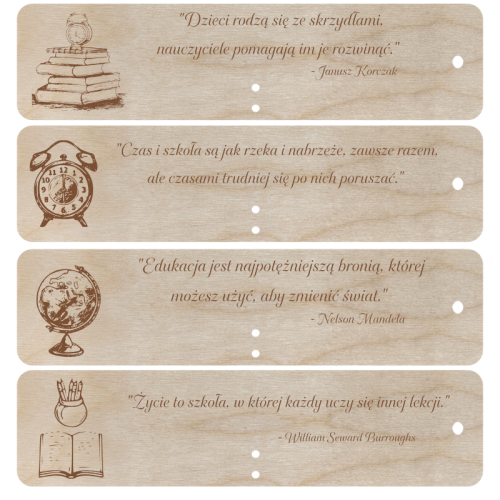 "Dzieci rodzą się ze skrzydłami,
nauczyciele pomagają im je rozwinąć."
- Janusz Korczak
"Czas i szkoła są jak rzeka i nabrzeże, zawsze razem,
ale czasami trudniej się po nich poruszać."
11 12 1
10 2
9 3
8 4
7 6 5
"Edukacja jest najpotężniejszą bronią, której
możesz użyć, aby zmienić świat."
- Nelson Mandela
"Życie to szkoła, w której każdy uczy się innej lekcji."
- William Seward Burroughs